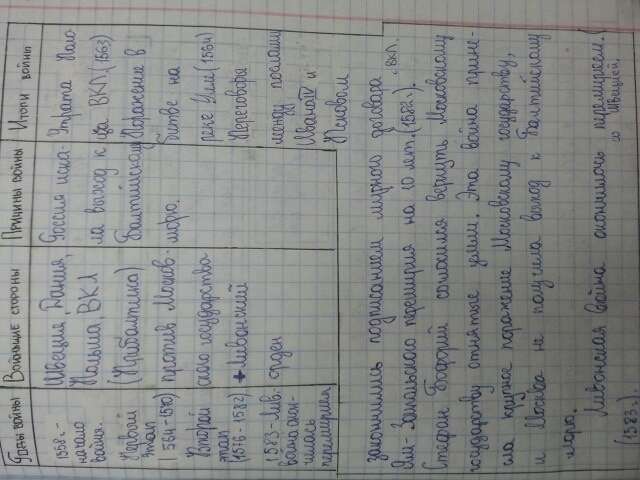 Годы войны
Воюющие стороны
Причины войны
Итоги войны
1558г.-
начало
войны.
Первый
этап
(1564-1570)
Второй
этап
(1576-1582)
1583-Лив.
война окон-
чилась
перемирием.
Швеция, Дания,
Польша, ВКЛ
(Прибалтика)
против Москов-
ского государства
+ Ливонский
орден
Россия иска-
ла выход к
Балтийскому
морю.
Утрата Поло-
цка ВКЛ (1563)
Поражение в
битве на
реке Улле (1564)
Переговоры
между послами
Ивана IV и
Псковом
закончились подписанием мирного договора с ВКЛ.
Ям-Запольского перемирия на 10 лет (1582г.).
Стефан Баторий согласился вернуть Московскому
государству отнятые земли. Эта война прине-
сла крупное поражение Московскому государству,
и Москва не получила выход к Балтийскому
морю.
Ливонская война окончилось перемирием
со Швецией
(1583г.)